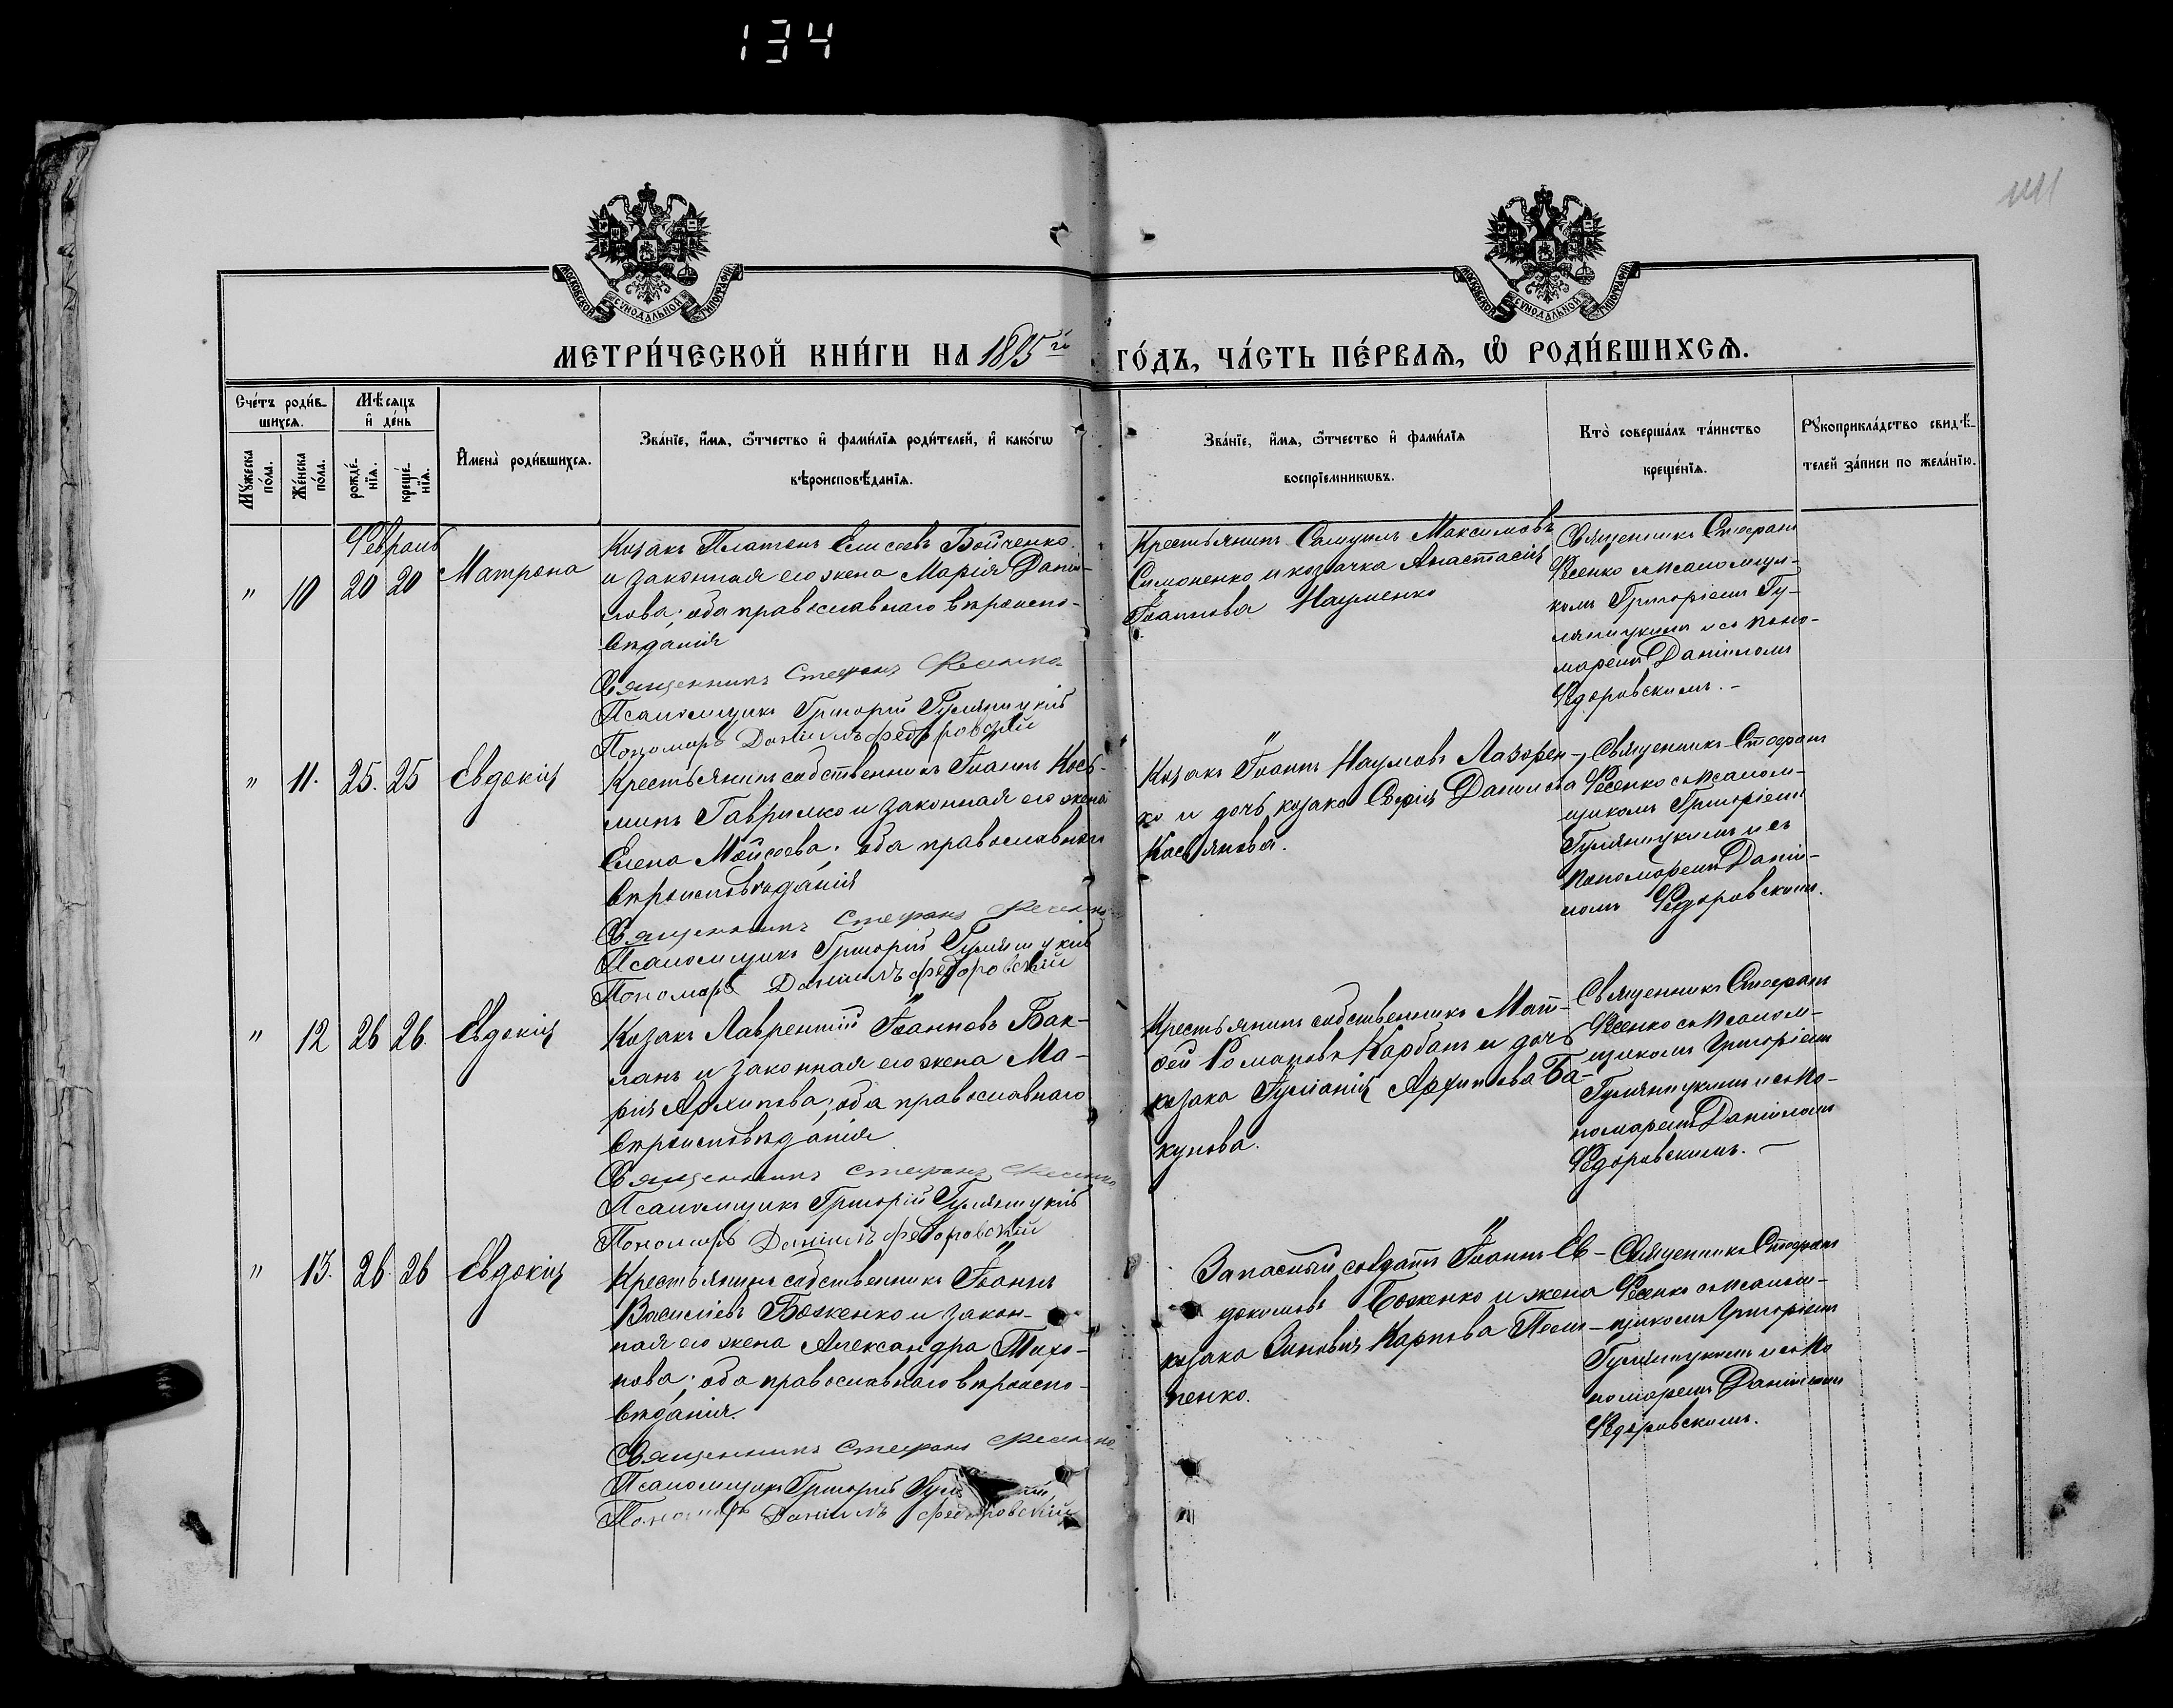 134
1111
МОСКОВСКОЙ СѴНОДАЛЬНОЙ ТИПОГРАФІИ
МОСКОВСКОЙ СѴНОДАЛЬНОЙ ТИПОГРАФІИ
МЕТРИ́ЧЕСКОЙ КНИ́ГИ НА 1895й ГО́ДЪ, ЧА́СТЬ ПЕ́РВАѦ, Ѡ РОДИ́ВШИХСѦ.
Сче́тъ роди́в-
шихсѧ.
Мѣ́сѧцъ
и҆ де́нь
Мꙋ́жеска
по́ла.
Же́нска
по́ла.
рожде́-
нїѧ.
креще́-
нїѧ.
И҆мена̀ роди́вшихсѧ.
Зва́нїе, и҆́мѧ, ѻ҆́тчество и҆ фами́лїѧ роди́телей, и҆ како́гѡ
вѣроисповѣ́данїѧ.
Зва́нїе, и҆́мѧ, ѻ҆́тчество и҆ фами́лїѧ
воспрїемникѡвъ.
Кто̀ соверша́лъ та́инство
креще́нїѧ.
Рꙋкоприкла́дство свидѣ́-
телей за́писи по жела́нїю.
Февраль
" 10 20 20 Матрона
Козакъ Платонъ Елисеевъ Бойченко
и законная его жена Марія Дании-
лова; оба православнаго вѣроиспо-
вѣданія
Священникъ Стефанъ Фесенко
Псаломщикъ Григорій Гуляницкій
Пономарь Даніилъ Федоровскій
Крестьянинъ Самуилъ Максимовъ
Симоненко и козачка Анастасія
Іоаннова Науменко
Священникъ Стефанъ
Фесенко съ псаломщи-
комъ Григоріемъ Гу-
ляницкимъ и съ поно-
маремъ Даніиломъ
Федоровскимъ. –
" 11. 25. 25 Евдокія
Крестьянинъ собственникъ Іоаннъ Кось-
минъ Гаврилко и законная его жена
Елена Моисеева; оба православнаго
вѣроисповѣданія
Священникъ Стефанъ Фесенко
Псаломщикъ Григорій Гуляницкій
Пономарь Даніилъ Федоровскій
Козакъ Іоаннъ Наумовъ Лазорен-
ко и дочь козака Софія Данилова
Касьянова.
Священникъ Стефанъ
Фесенко съ псалом-
щикомъ Григоріемъ
Гуляницкимъ и съ
пономаремъ Даніи-
ломъ Федоровскимъ.
" 12 26 26. Евдокія
Козакъ Лаврентій Іоанновъ Бак-
ланъ и законная его жена Ма-
рія Архипова; оба православнаго
вѣроисповѣданія
Священникъ Стефанъ Фесенко
Псаломщикъ Григорій Гуляницкій
Пономарь Даніилъ Федоровскій
Крестьянинъ собственникъ Мат-
фей Романовъ Карбанъ и дочь
козака Іуліанія Архипова Ба-
кунова.
Священникъ Стефанъ
Фесенко съ псалом-
щикомъ Григоріемъ
Гуляницкимъ и съ по-
номаремъ Даніиломъ
Федоровскимъ. –
" 13. 26. 26 Евдокія
Крестьянинъ собственникъ Іоаннъ
Василіевъ Боженко и закон-
ная его жена Александра Тихо-
нова; оба православнаго вѣроиспо-
вѣданія.
Священникъ Стефанъ Фесенко
Псаломщикъ Григорій
Пономарь Даніилъ Федоровскій
Запасный солдатъ Іоаннъ Ев-
докимовъ Боженко и жена
козака Зиновія Карпова
пенко.
Священникъ Стефанъ
Фесенко съ псалом-
щикомъ Григоріемъ
Гуляницкимъ и съ по
номаремъ Даніиломъ
Федоровскимъ.